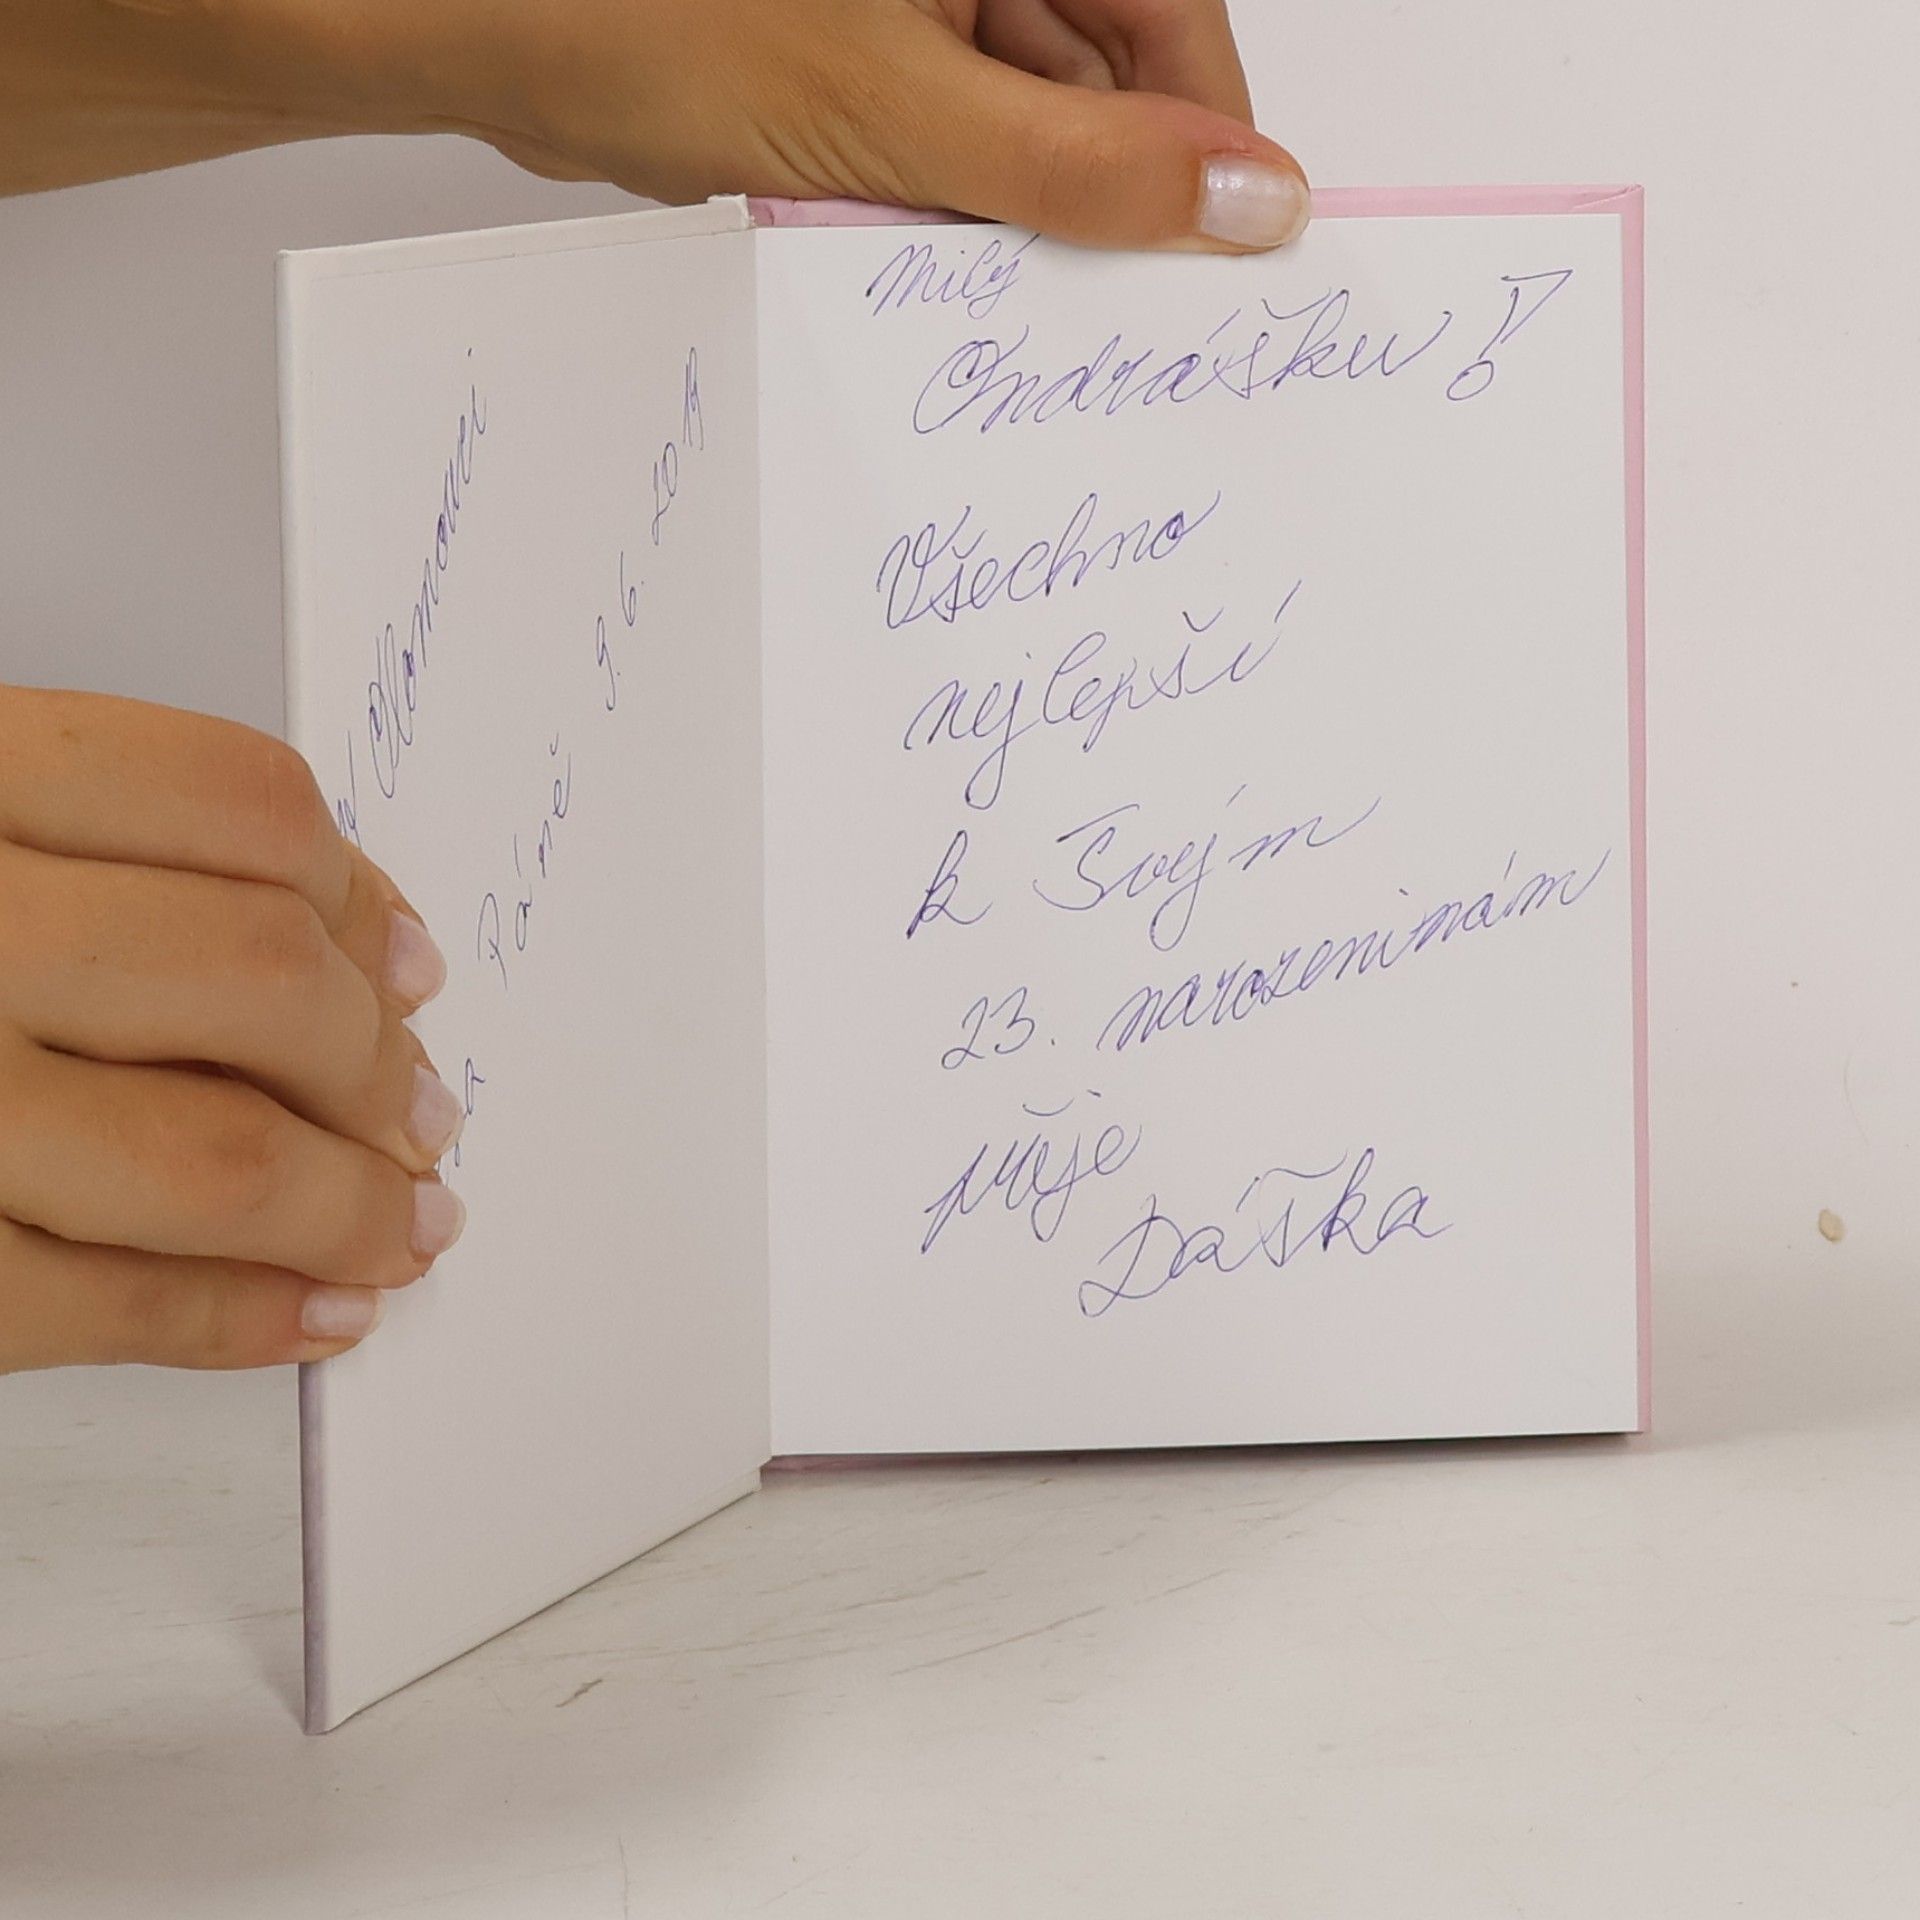 Olomouci
Páně 9. 6. 2019
Milý
Ondrášku!
Všechno
nejlepší
k Tvým
23. narozeninám
přeje
Dáška